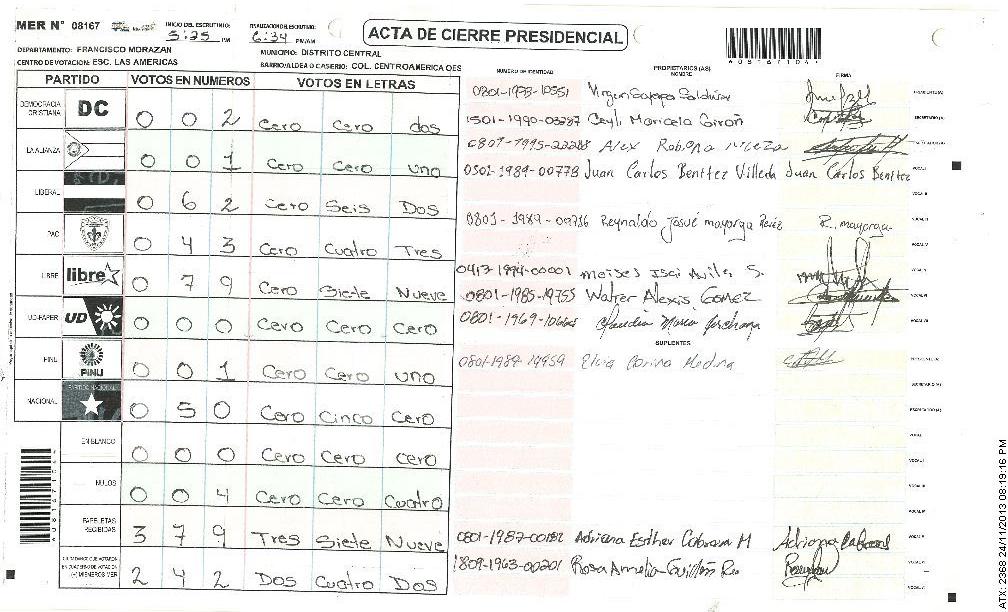 MER N° 08167
INICIO DEL ESCRUTINIO: 5:25 PM
FINALIZACION DEL ESCRUTINIO: 6:34 PM/AM
ACTA DE CIERRE PRESIDENCIAL
DEPARTAMENTO: FRANCISCO MORAZAN
MUNICIPIO: DISTRITO CENTRAL
CENTRO DE VOTACION: ESC. LAS AMERICAS
BARRIO/ALDEA O CASERIO: COL. CENTROAMERICA OES
PARTIDO VOTOS EN NUMEROS VOTOS EN LETRAS
NUMERO DE IDENTIDAD PROPIETARIOS (AS) NOMBRE FIRMA
DEMOCRACIA CRISTIANA DC 0 0 2 Cero Cero dos
LA ALIANZA 0 0 1 Cero Cero uno
LIBERAL 0 6 2 Cero Seis Dos
PAC 0 4 3 Cero Cuatro Tres
LIBRE libre 0 7 9 Cero Siete Nueve
UD-FAPER UD 0 0 0 Cero Cero Cero
PINU PINU 0 0 1 Cero Cero uno
NACIONAL PARTIDO NACIONAL 0 5 0 Cero Cinco Cero
EN BLANCO 0 0 0 Cero Cero Cero
NULOS 0 0 4 Cero Cero Cuatro
PAPELETAS RECIBIDAS 3 7 9 Tres Siete Nueve
CIUDADANOS QUE VOTARON EN CUADERNO DE VOTACION (+) MIEMBROS MER 2 4 2 Dos Cuatro Dos
0801-1973-10551 Virgen
1501-1990-03287 Maricela Girón
Alex
0501-1989-00778 Juan Carlos Benítez Villeda Juan Carlos Benítez
0801-1989-09716 Reynaldo Josué mayorga R. mayorga
0413-1994-00001 moises Isai Avila S.
0801-1985-19755 Walter Alexis Gomez
0801-1969-10668 Claudia Maria
SUPLENTES
0801-1989-14959 Elvia Corina Medina
0801-1987-00182 Adriana Esther Cabrera M Adriana Cabrera
1809-1963-00201 Rosa Amelia
ATX: 2368 24/11/2013 08:19:16 PM